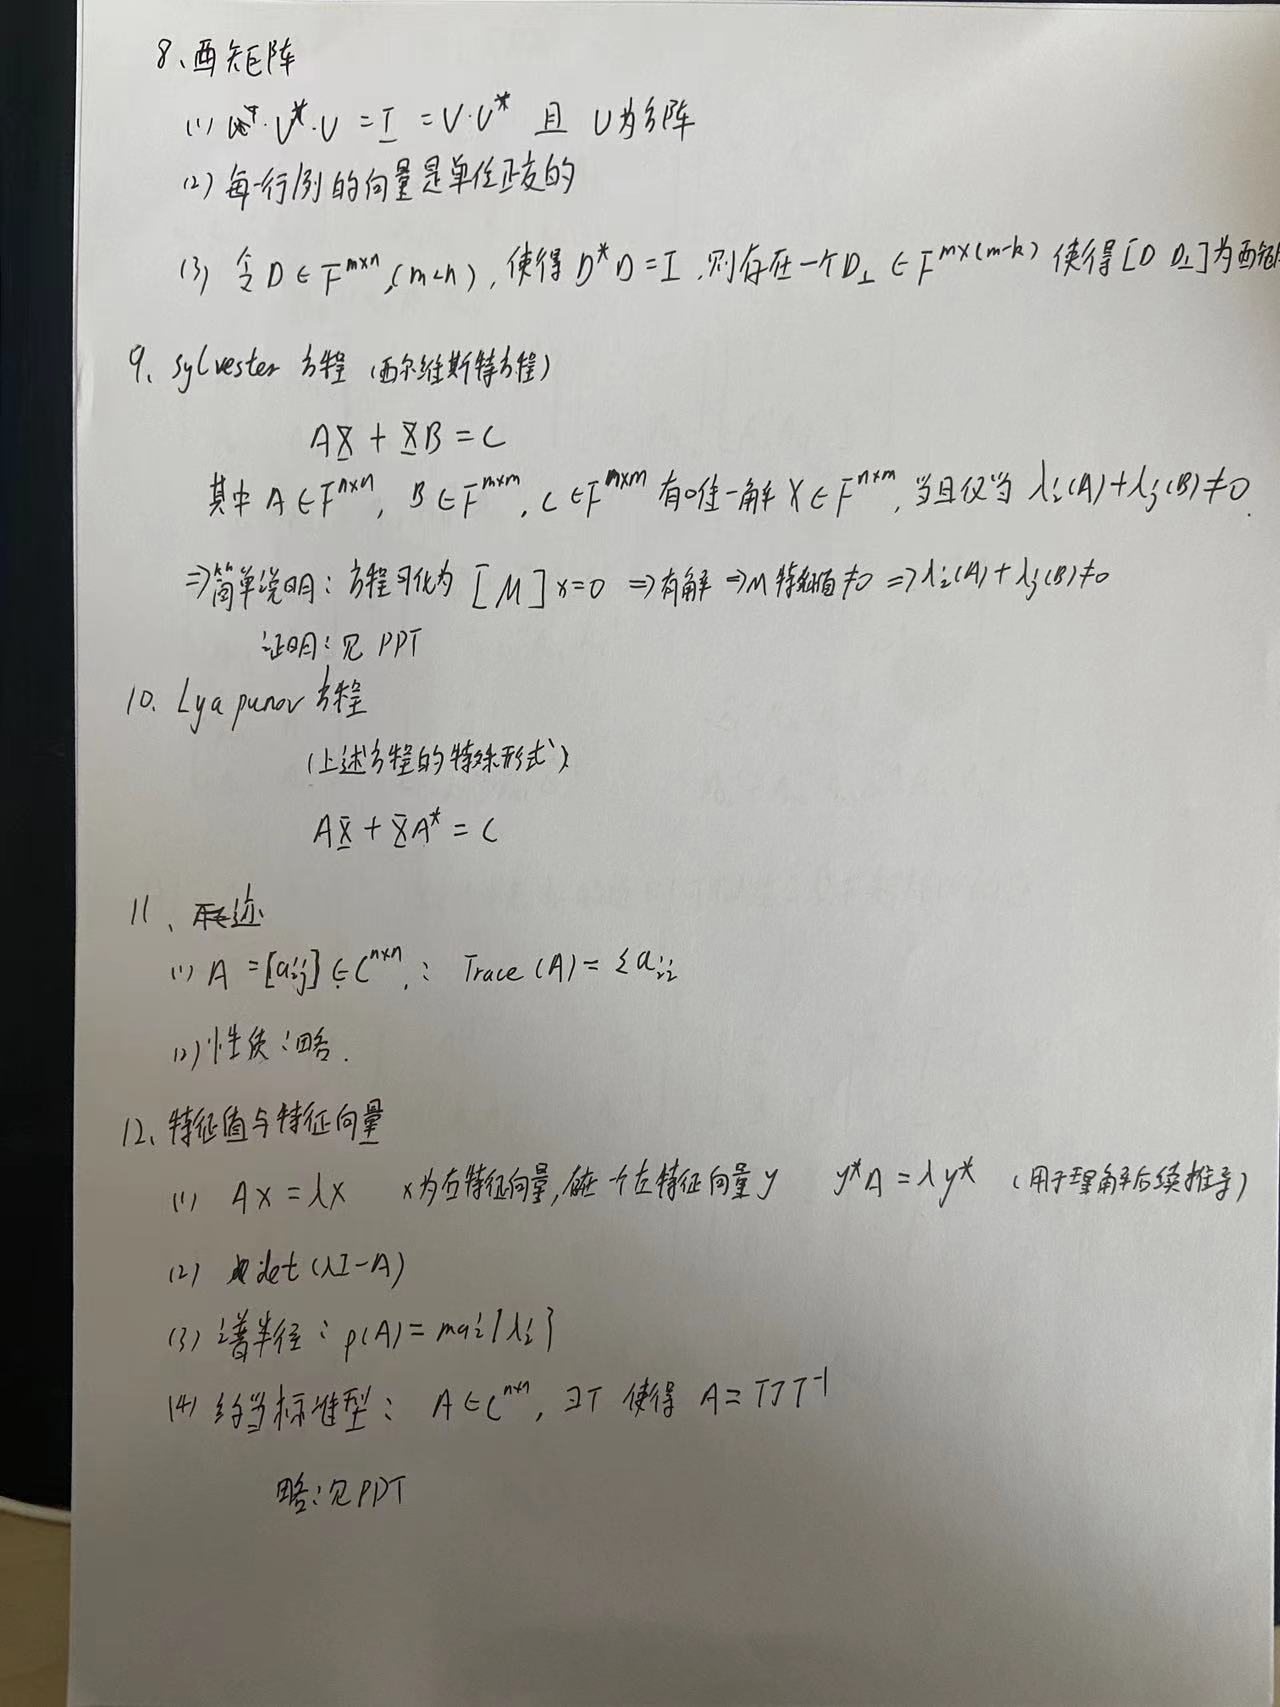 8、酉矩阵
(1) U*·U = I = U·U* 且 U为方阵
(2) 每一行/列的向量是单位正交的
(3) 令 D ∈ F^{m×n}, (m<n), 使得 D*D = I, 则存在一个 D⊥ ∈ F^{m×(m-k)} 使得 [D D⊥] 为酉矩阵
9、Sylvester 方程 (西尔维斯特方程)
AX + XB = C
其中 A ∈ F^{n×n}, B ∈ F^{m×m}, C ∈ F^{m×m} 有唯一解 X ∈ F^{n×m}, 当且仅当 λi(A)+λj(B)≠0.
⇒简单说明: 方程可化为 [M]x=0 ⇒有解 ⇒M特征值≠0 ⇒λi(A)+λj(B)≠0
证明: 见 PPT
10. Lyapunov 方程
(上述方程的特殊形式)
AX + XA* = C
11、迹
(1) A = [aij] ∈ C^{n×n}, : Trace(A) = Σaii
(2) 性质: 略.
12、特征值与特征向量
(1) Ax = λx x为右特征向量, 存在一个左特征向量y y*A = λy* (用于理解后续推导)
(2) det(λI-A)
(3) 谱半径: ρ(A) = {λi}
(4) 约当标准型: A ∈ C^{n×n}, ∃T 使得 A = TJT^{-1}
略: 见PPT